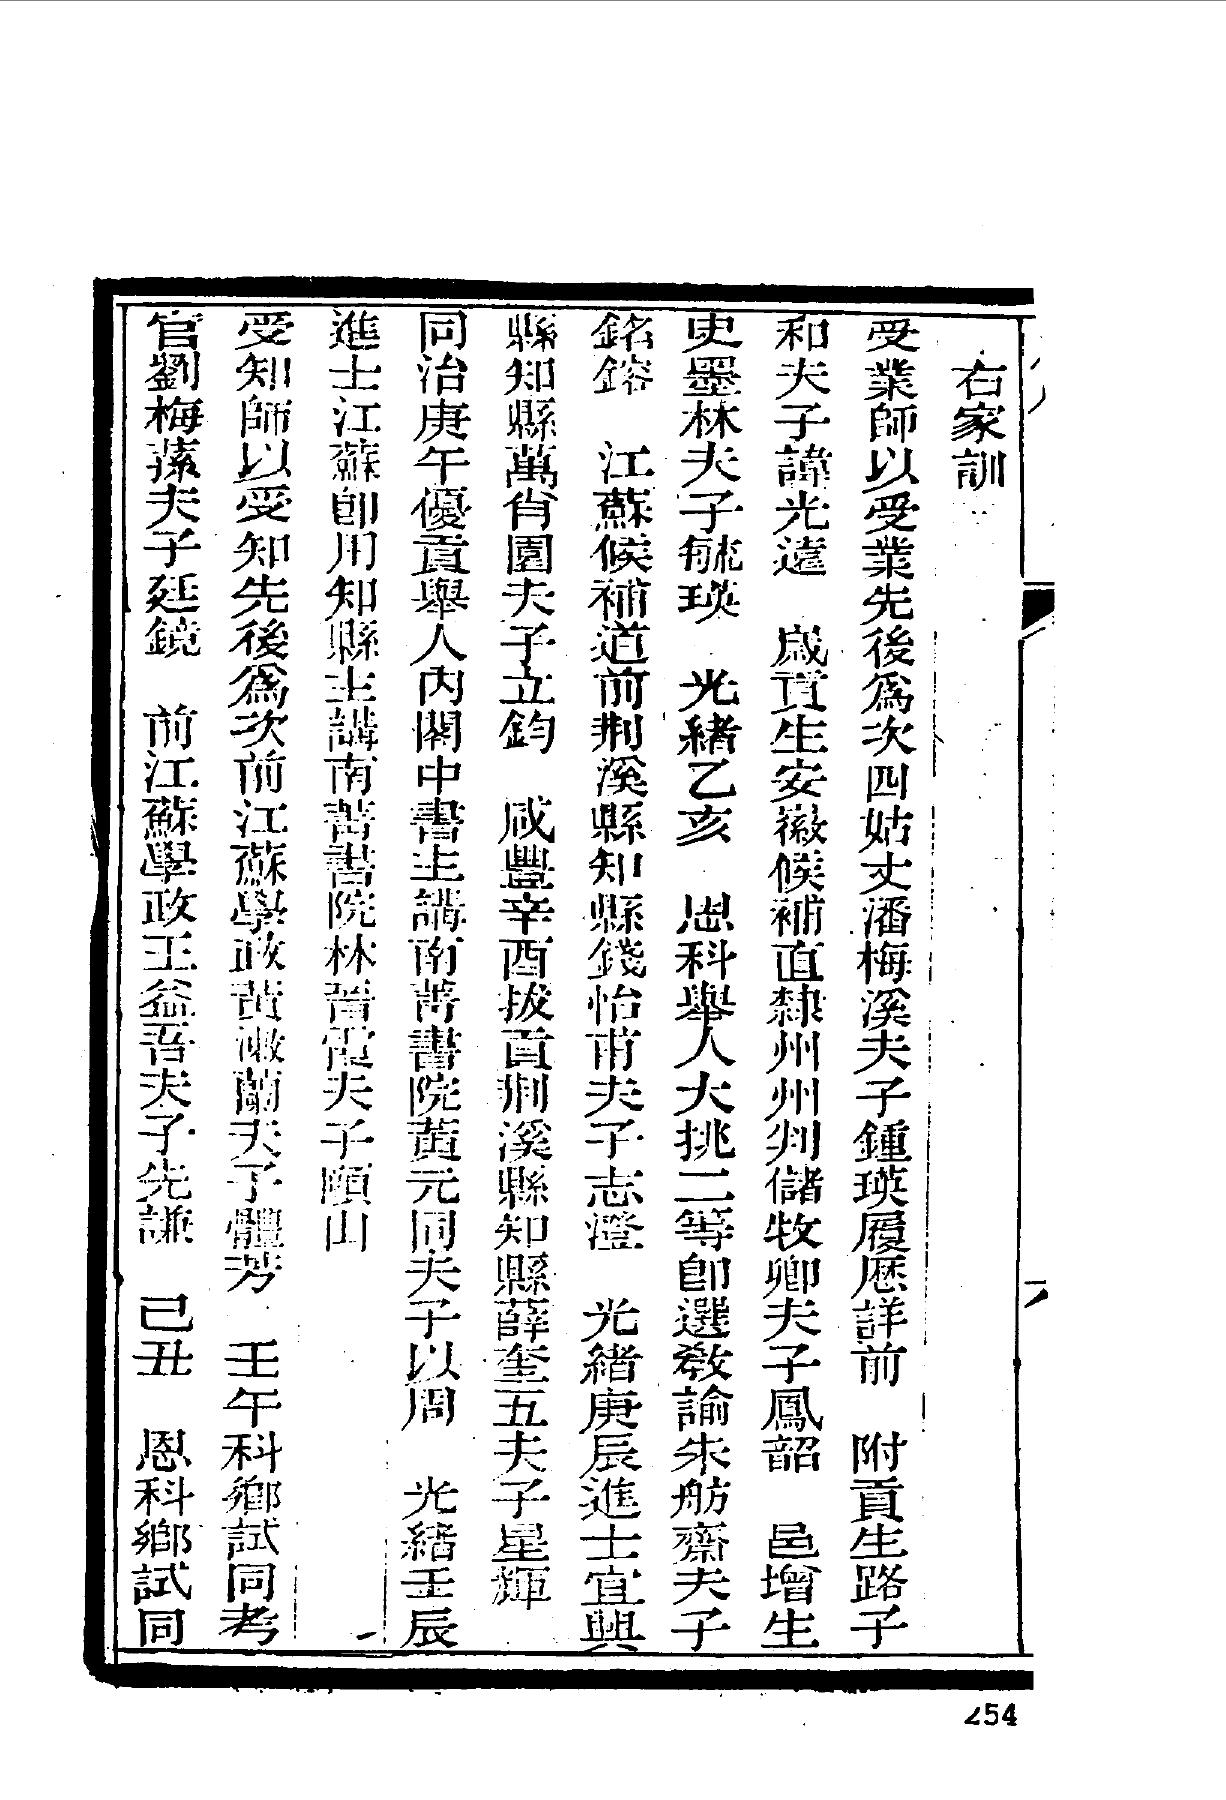 右家訓
受業師以受業先後爲次四姑丈潘梅溪夫子鍾瑛履歷詳前　附貢生路子
和夫子諱光遠　歲貢生安徽候補直隸州州判儲牧卿夫子鳳韶　邑增生
史墨林夫子毓瑛　光緒乙亥　恩科舉人大挑二等卽選敎諭朱舫齋夫子
銘鎔　江蘇候補道前荆溪縣知縣錢怡甫夫子志澄　光緒庚辰進士宜興
縣知縣萬肖園夫子立鈞　咸豐辛酉拔貢荆溪縣知縣薛奎五夫子星輝
同治庚午優貢舉人內閣中書主講南菁書院黃元同夫子以周　光緒壬辰
進士江蘇卽用知縣主講南菁書院林晉霞夫子頤山
受知師以受知先後爲次前江蘇學政黃漱蘭夫子體芳　壬午科鄉試同考
官劉梅蓀夫子廷鏡　前江蘇學政王益吾夫子先謙　己丑　恩科鄉試同
254